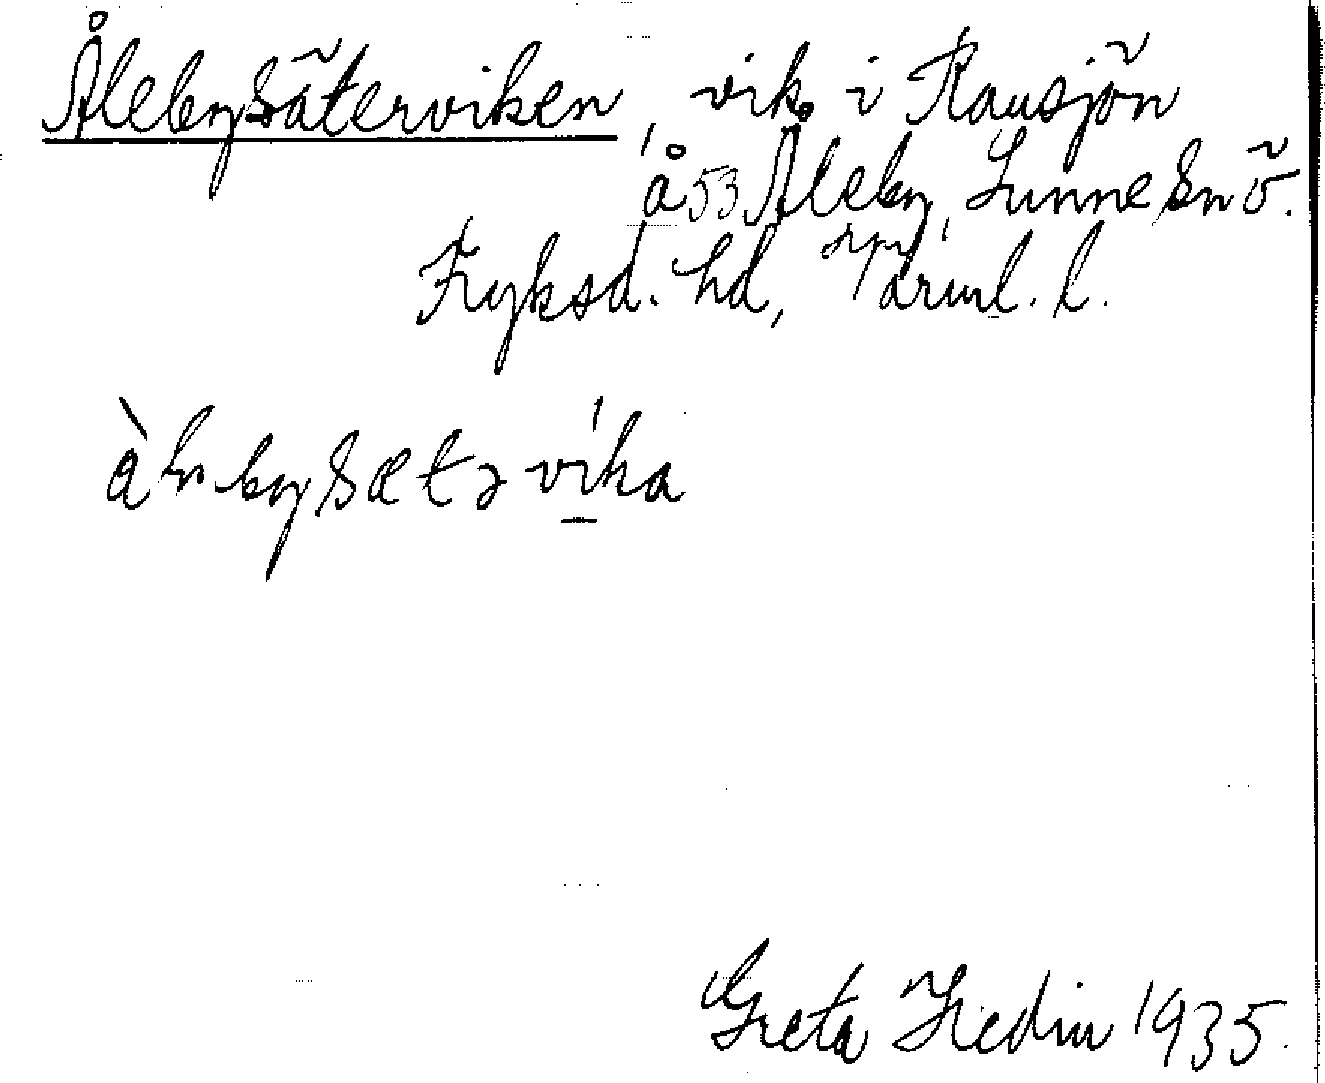 Ålebysäterviken, vik i Rausjön
å 53 Åleby, Sunne sn ö.
Fryksd. hd, Värml. l.
Greta Hedin 1935.